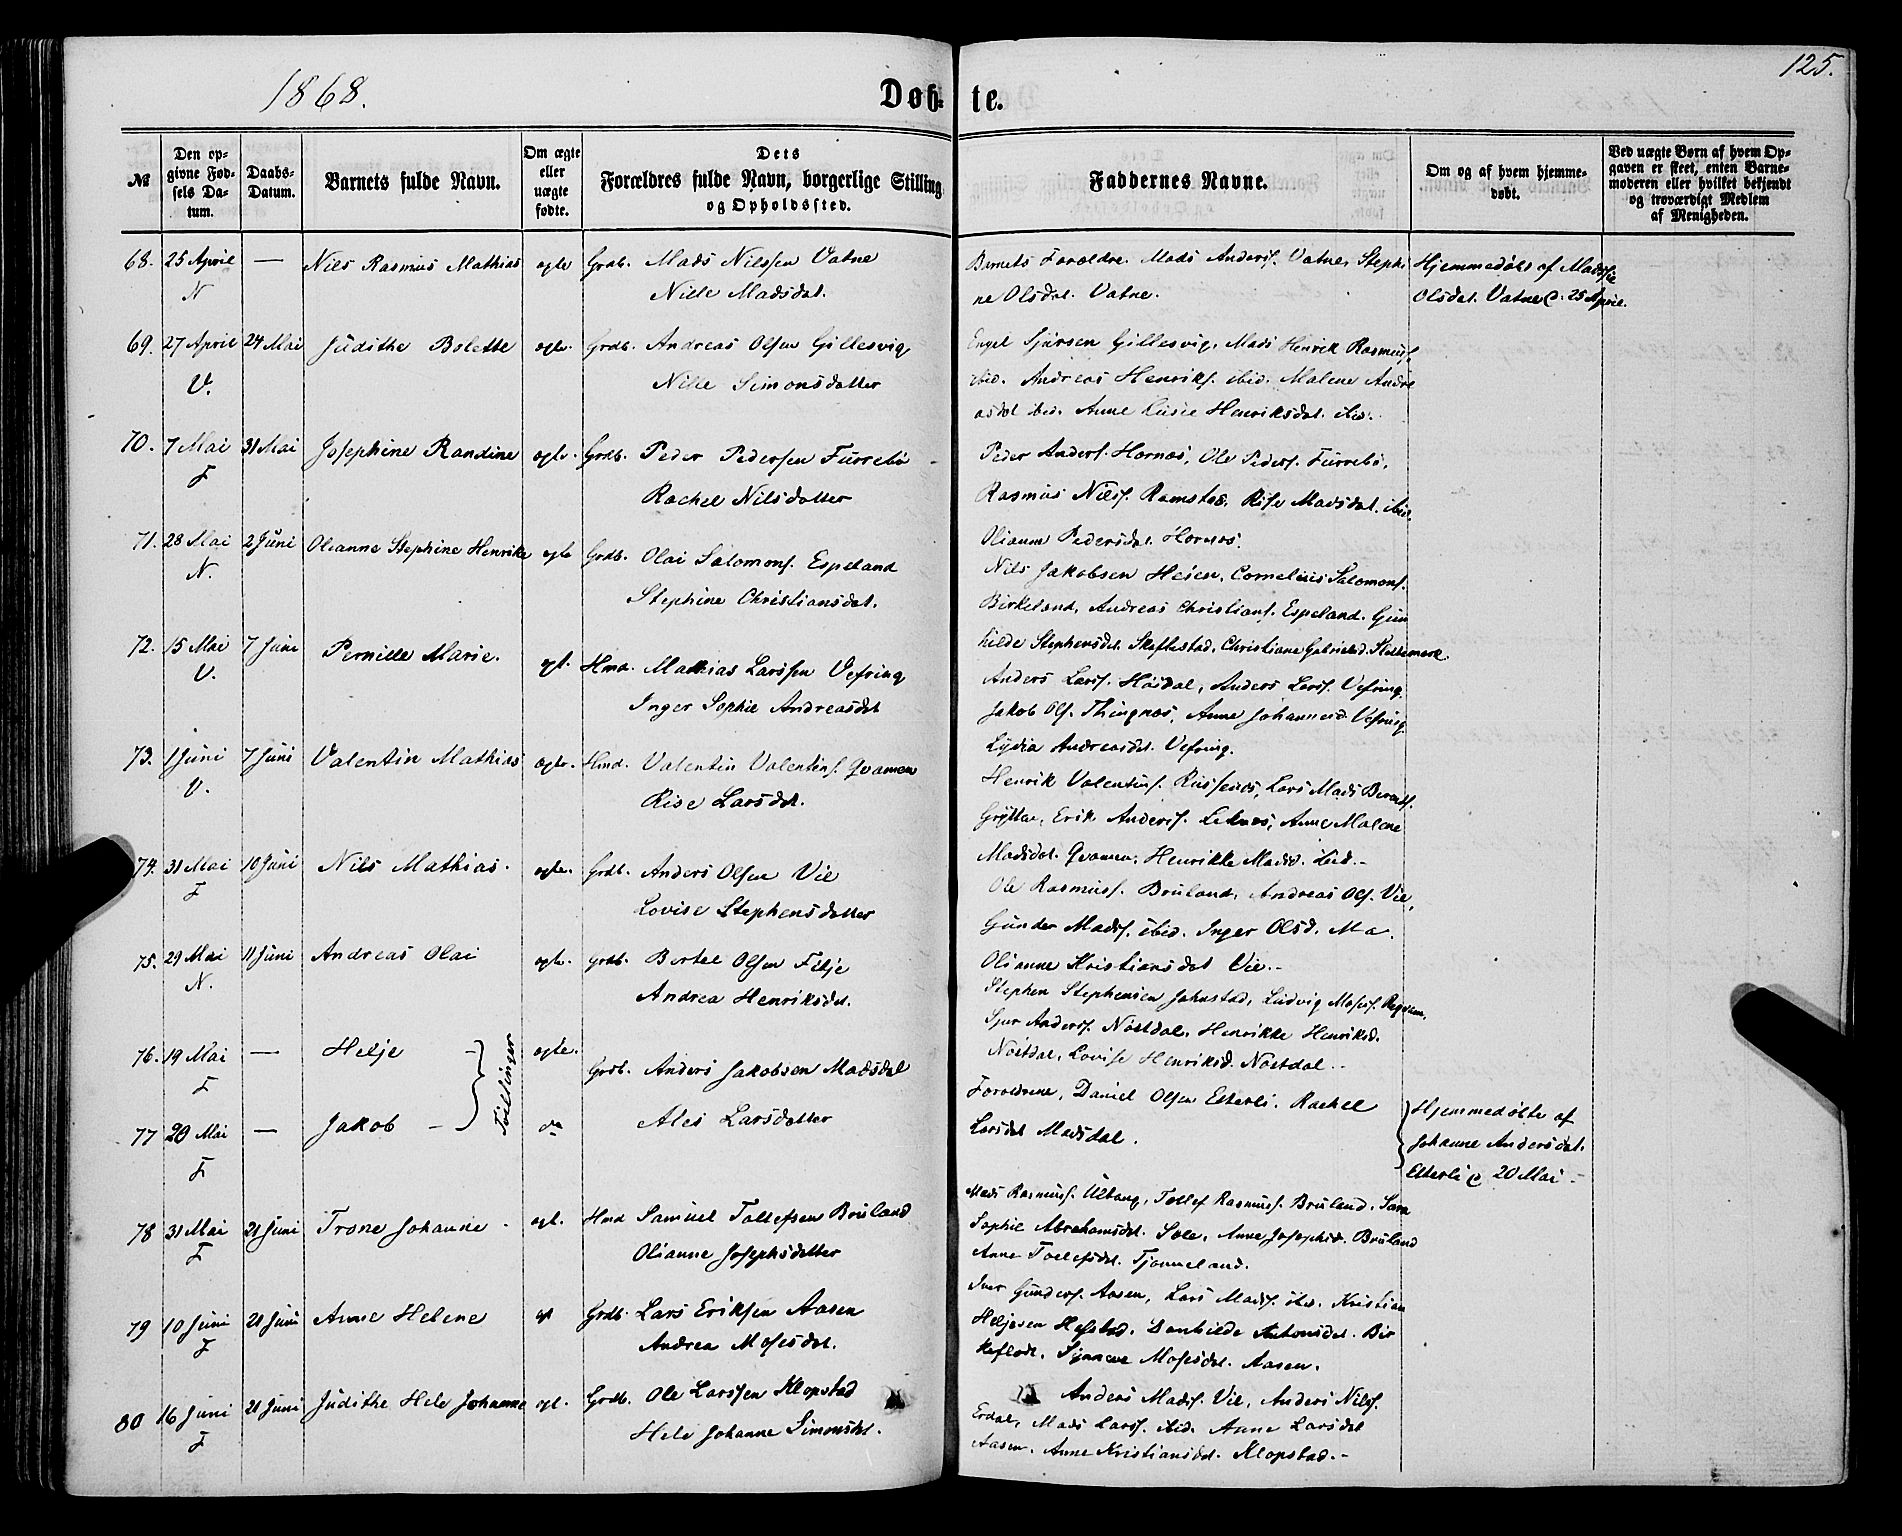 125.
1868.
Døb- te.
№
Den op-
givne Fød-
sels Da-
tum.
Daabs-
Datum.
Barnets fulde Navn.
Om ægte
eller
uægte
fødte.
Dets
Forældres fulde Navn, borgerlige Stilling
og Opholdssted.
Faddernes Navne.
Om og af hvem hjemme-
døbt.
Ved uægte Børn af hvem Op-
gaven er skeet, enten Barne-
moderen eller hvilket bekjendt
og troværdigt Medlem
af Menigheden.
68. 25 April — Nils Rasmus Mathias ægte Grdb. Mads Nilssen Vatne
N Nille Madsdat.
Barnets Foroldre. Mads Anders. Vatne, Stephi
ne Olsdat. Vatne.
Hjemmedøbt af Mads
Olsdat. Vatne d. 25 April.
69. 27 April 24 Mai Judithe Bolette ægte. Grdb. Andreas Olsen Gillesvig
V. Nille Simonsdatter
Engel Sjursen Gillesvig, Mads Henrik Rasmus.
ibid. Andreas Henriks. ibid. Malene Andre
asdat ibid. Anne Lusie Henriksdat. ibid.
70. 7 Mai 31 Mai Josephine Randine ægte. Grdb. Peder Pedersen Furrebø
F Rachel Nilsdatter
Peder Anders. Hornes, Ole Peders. Furrebø,
Rasmus Nils. Ramstad, Rise Madsdat. ibid.
Olianne Pedersdat. Hornes.
71. 28 Mai 2 Juni Olianne Stephine Henrikke ægte Grdb. Olai Salomons. Espeland
N. Stephine Christiansdat.
Nils Jakobsen Heien, Cornelius Salomons.
Birkeland, Andreas Christians. Espeland. Gun
hilde Stephensdat. Skaftestad, Christiane Gabrielsd.
72. 15 Mai 7 Juni Pernille Marie. ægt. Hmd. Mathias Larssen Vefring
V. Inger Sophie Andreasdat
Anders Lars. Høidal, Anders Lars. Vefring
Jakob Ols. Thingnes, Anne Johannesd. Vefring
Lydia Andreasdat. Vefring.
73. 1 Juni 7 Juni Valentin Mathias ægte. Hmd. Valentin Valentins. Qvamen
V. Rise Larsdat.
Henrik Valentins. Russenes, Lars Mads
Gryttæ, Erik Anders. Leknes, Anne Malene
Madsdat. Qvamen, Henrikke Madsd.
74. 31 Mai 10 Juni Nils Mathias. ægte. Grdb. Anders Olsen Vie
F Lovise Stephensdatter
Ole Rasmus. Bruland, Andreas Ols. Vie,
Gunder Mads. ibid. Inger Olsd. Mo.
Olianne Kristiansdat Vie.
75. 29 Mai 11 Juni Andreas Olai ægte. Grdb. Bertel Olsen Fitje
N. Andrea Henriksdat.
Stephen Stephensen Johnstad, Ludvig Moses.
Sjur Anders. Nøstdal, Henrikke Henriksd.
Nøstdal, Lovise Henriksd. Nøstdal.
76. 19 Mai — Helje ægte. Grdb. Anders Jakobsen Madsdal
F Tvillinger
77 20 Mai — Jakob do Ales Larsdatter
F
Foroldrene, Daniel Olsen Etterli. Rachel
Larsdat Madsdal.
Hjemmedøbte af
Johanne Andersdat.
Etterli d 20 Mai
78 31 Mai 21 Juni Trone Johanne ægt. Hmd Samuel Tollefsen Bruland
F Olianne Josephsdatter
Mads Rasmus. Ultang, Tollef Rasmus. Bruland. Sara
Sophie Abrahamsdat. Sole, Anne Josephsd. Bruland
Anne Tollefsdat. Tjonneland.
79 10 Juni 21 Juni Anne Helene æt Grdb. Lars Eriksen Aasen
F Andrea Mosesdat.
Iver Gunders. Aasen, Lars Mads. ibid. Kristian
Heljesen Hafstad. Danhilde Antonsdat. Bir
keflot. Synneve Mosesdat. Aasen.
80 16 Juni 21 Juni Judithe Hele Johanne ægt. Grdb. Ole Larssen Klopstad
F Hele Johanne Simonsdat.
Anders Mads. Vie, Anders Nils.
Erdal, Mads Lars. ibid. Anne Larsdat
Aasen. Anne Kristiansdat. Klopstad.